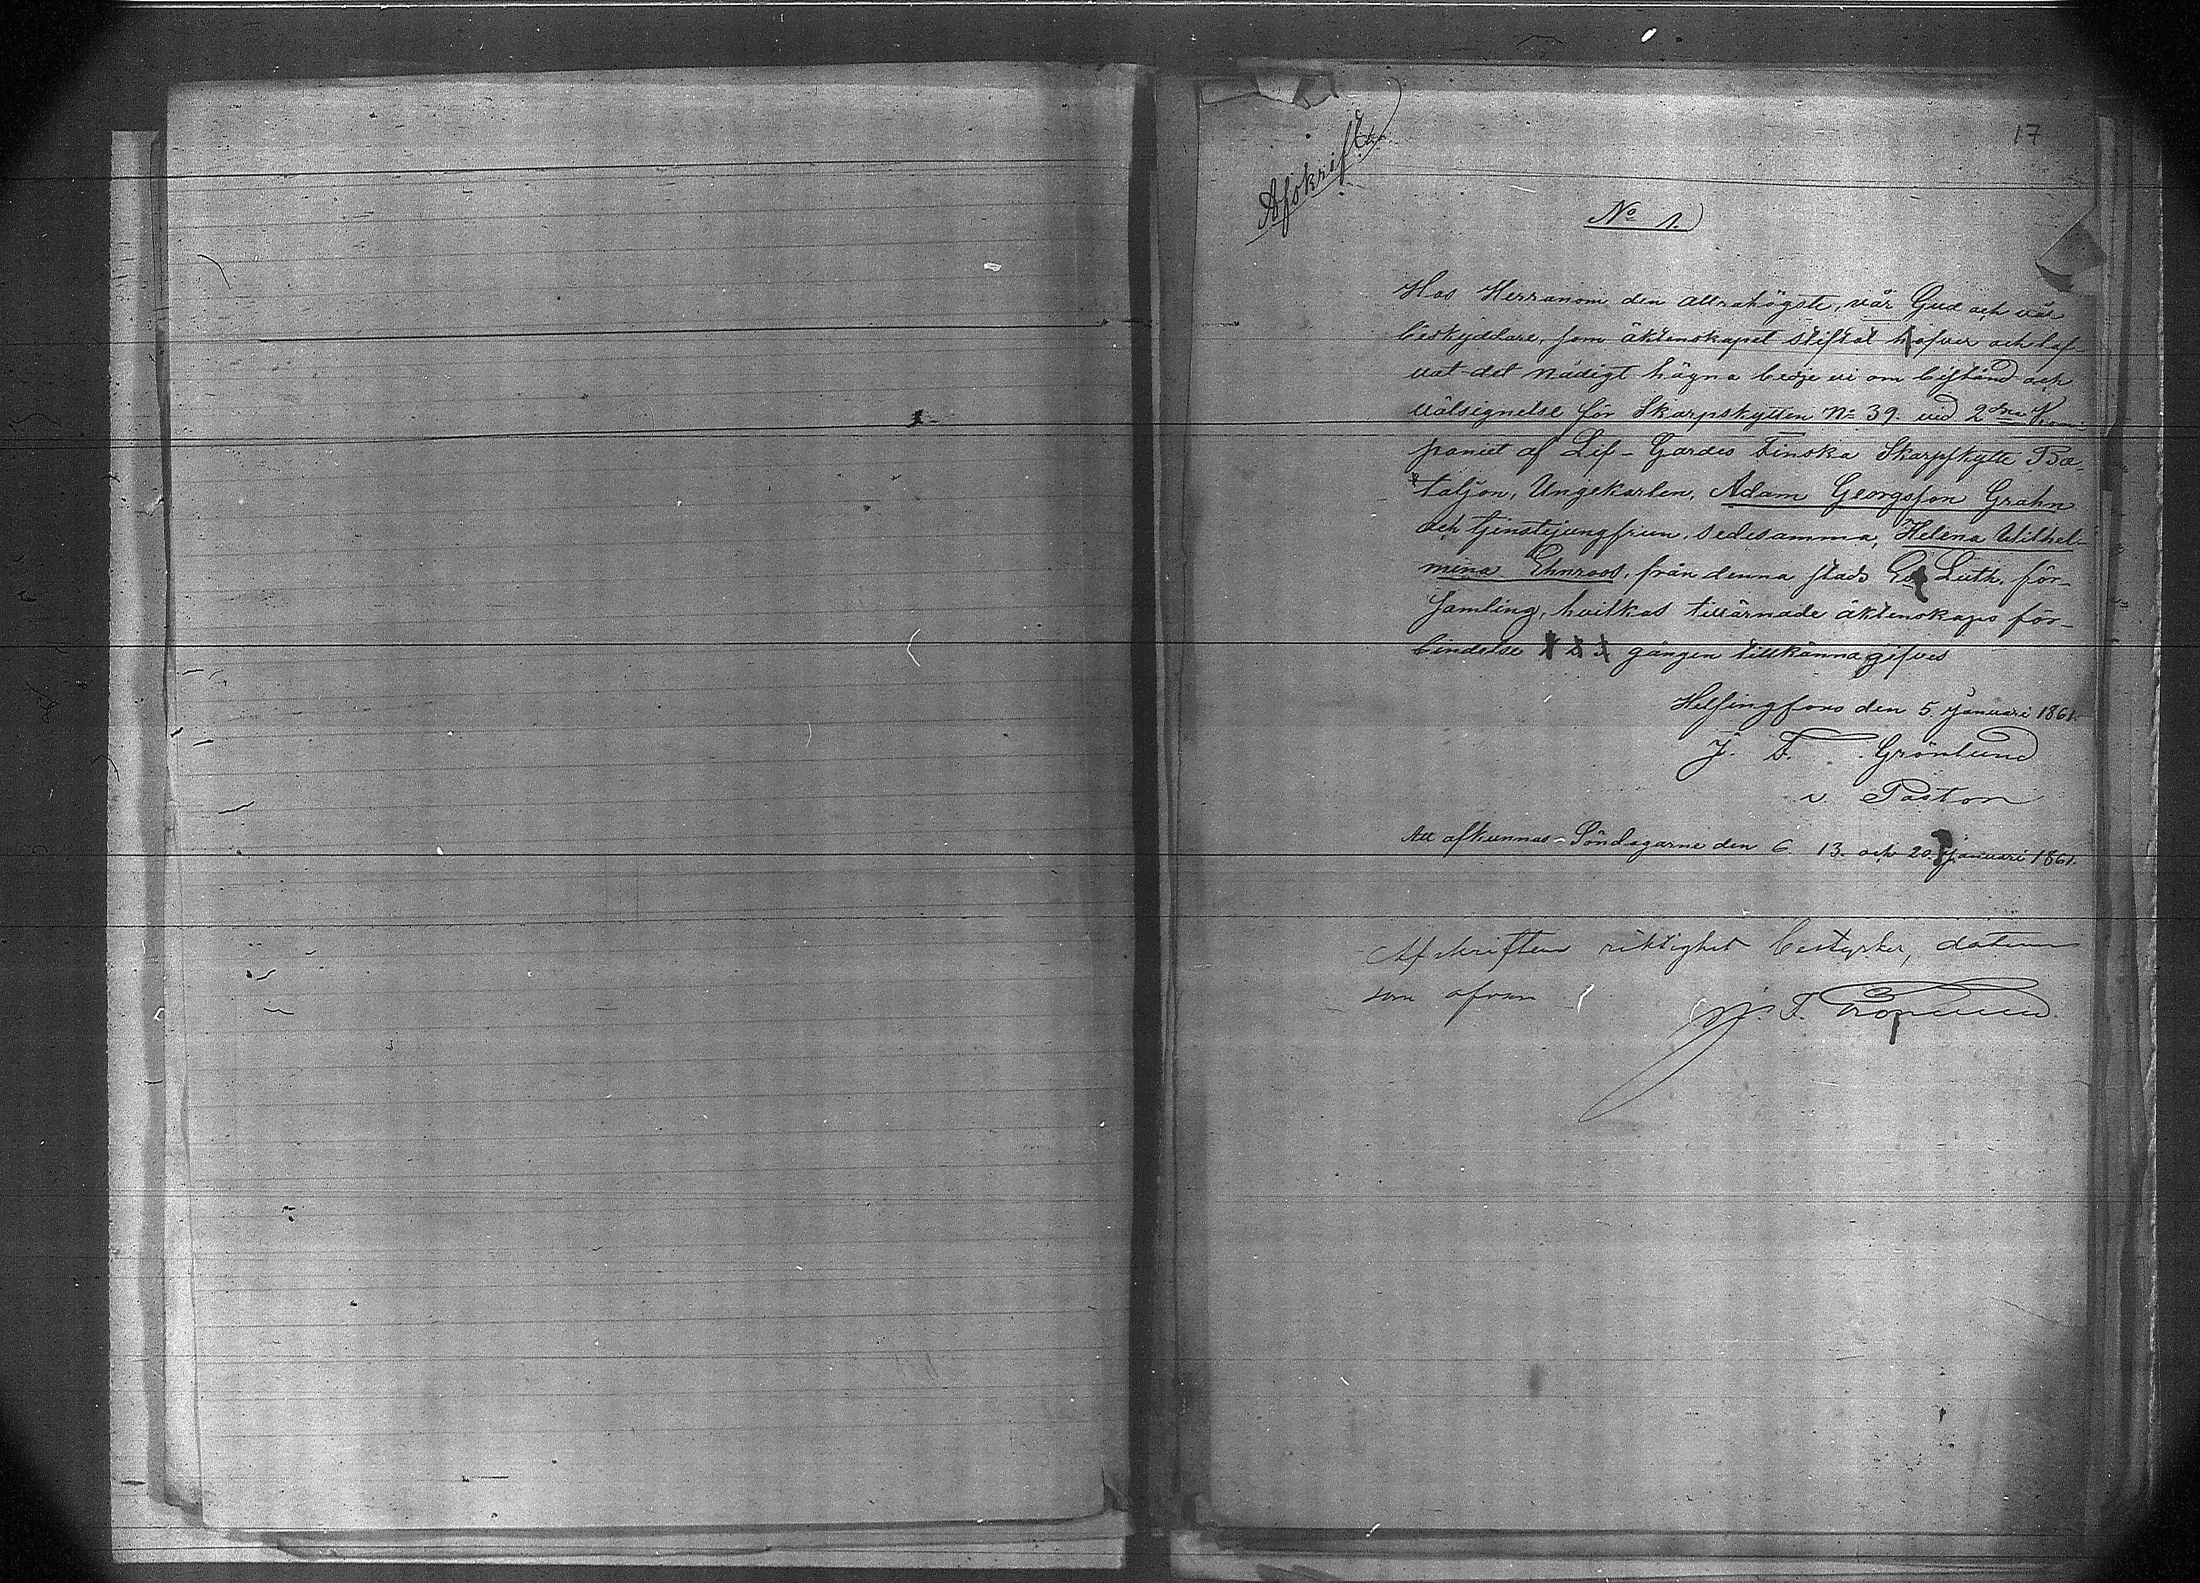 17
Afskrift
No 1.
Hos Herranom den allrahögste, vår Gud och vår
beskyddare, som äktenskapet stiftat hafver och lof-
vat det nådigt hägna bedje vi om bistånd och
välsignelse för Skarpskytten No 39. vid 2dra Kom-
paniet af Lif-Gardes Finska Skarpskytte Ba-
taljon, Ungekarlen, Adam Georgsson Grahn
och tjenstejungfrun, sedesamma, Helena Vilhel-
mina Ehnroos, från denna stads Ev. Luth. för-
samling, hvilkas tillärnade äktenskaps för-
bindelse 1 2 3 gången tillkännagifves
Helsingfors den 5 Januari 1861.
J. F. Grönlund
v. Pastor
Att afkunnas Söndagarne den 6 13. och 20. Januari 1861.
Afskriftens riktighet bestyrker, datum
som ofvan
J. F. Grönlund